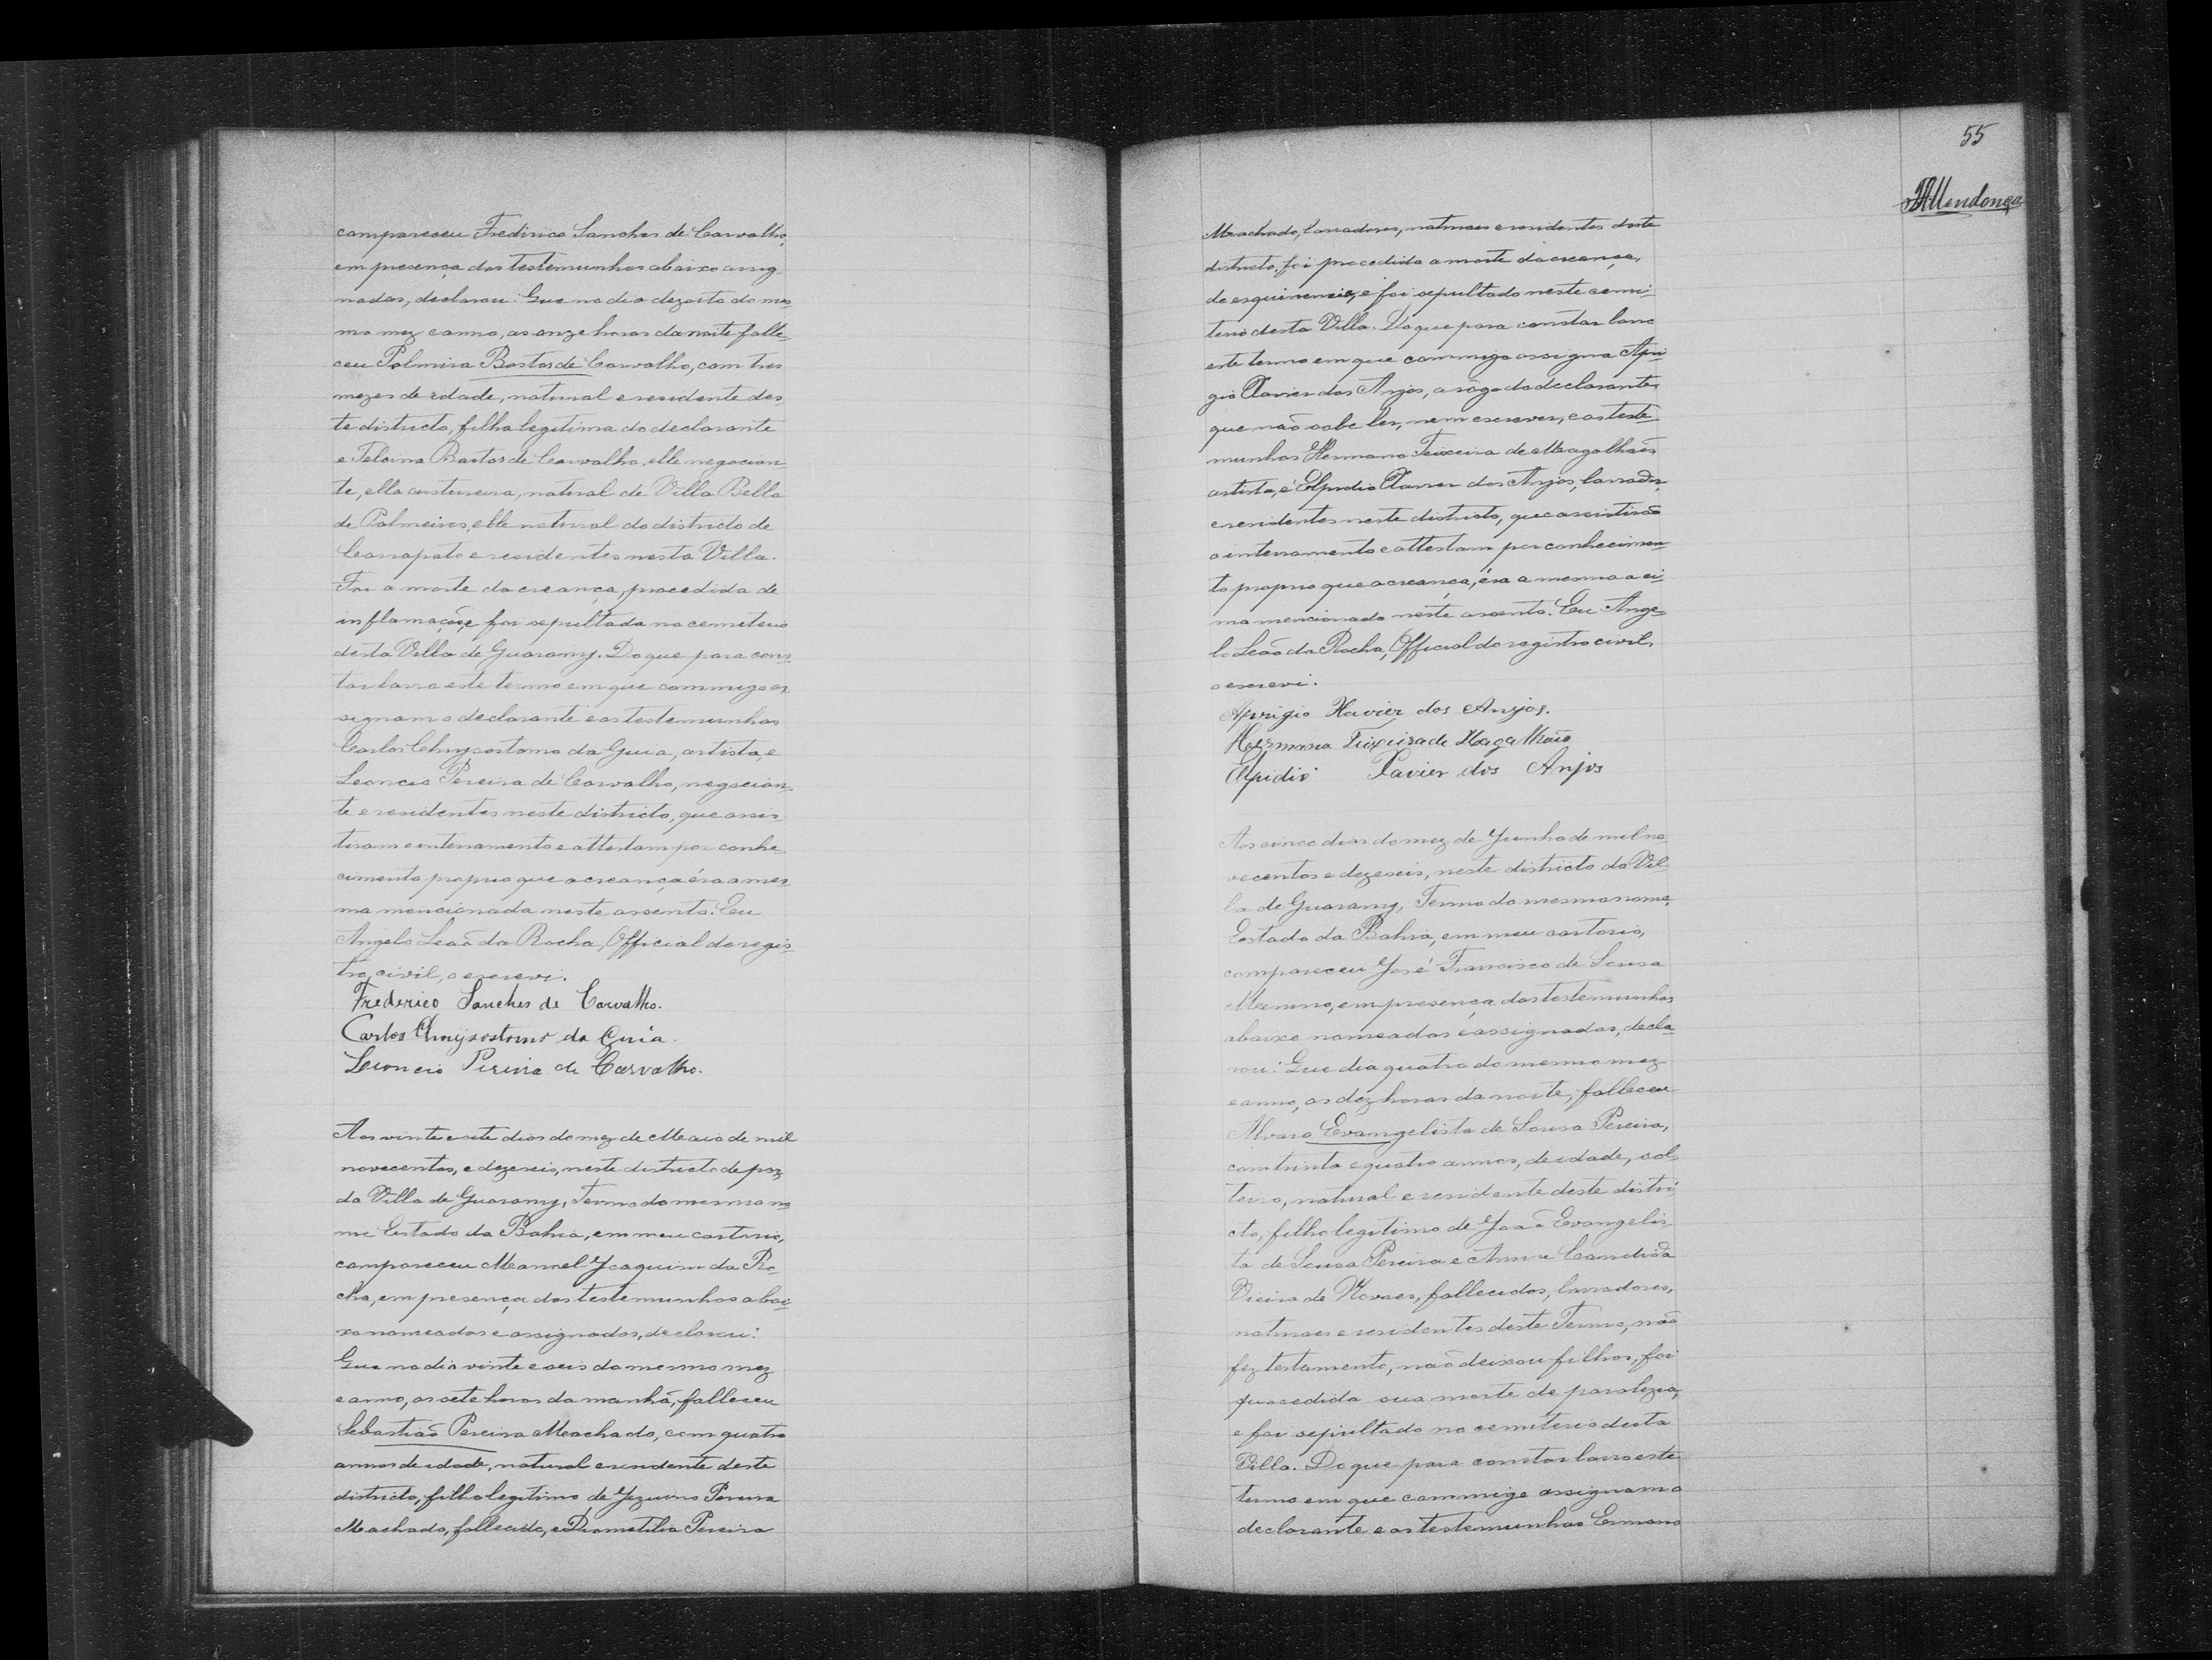 compareceu Fredirico Sanches de Carvalho,
em presença das testemunhas abaixo assig
nadas, declarou: Que no dia dezoito do mes
mo mez e anno, as onze horas da noite falle
ceu Palmira Bastos de Carvalho, com tres
mezes de edade, natural e residente des
te districto, filha legitima do declarante
e Bastos de Carvalho, elle negocian
te, ella custureira, natural de Villa Bella
de Palmeiras, elle natural do districto de
Carrapato e residentes nesta Villa.
Foi a morte da creança, procedida de
inflamação, e foi sepultada no cemiterio
desta Villa de Guarany. Do que para cons
tar lavro este termo em que commigo as
signam o declarante e as testemunhas
Carlos Chrysostomo da Guia, artista, e
Leoncio Pereira de Carvalho, negocian
te e residentes neste districto, que assis
tiram o enterramento e attestam por conhe
cimento proprio que a creança éra a mes
ma mencionada neste assento. Eu
Angelo Leão da Rocha, Official do regis
tro civil, o escrevi.
Frederico Sanches de Carvalho.
Carlos Chrysostomo da Guia.
Leoncio Pereira de Carvalho.
Aos vinte e sete dias do mez de Maio de mil
novecentos, e dezeseis, neste districto de paz
da Villa de Guarany, Termo do mesmo no
me Estado da Bahia, em meu cartorio,
compareceu Manoel Joaquim da Ro
cha, em presença das testemunhas abai
xo nomeadas e assignadas, declarou:
Que no dia vinte e seis do mesmo mez
e anno, as sete horas da manhã, falleceu
Sebastião Pereira Machado, com quatro
annos de idade, natural e residente deste
districto, filho legitimo de Jezuino Pereira
Machado, fallecido, e Pereira
55
Mendonça
Machado, lavradores, naturaes e residentes deste
districto, foi procedida a morte da creança,
de esquinencia, e foi sepultado neste cemi
terio desta Villa. Do que para constar lavro
este termo em que commigo assigna Apri
gio Xavier dos Anjos, a rôgo do declarante,
que não sabe ler, nem escrever, e as teste
munhas Hermano Teixeira de Magalhães
artista, e Elpidio Xavier dos Anjos, lavrador,
e residentes neste districto, que assistirão
o enterramento e attestam por conhecimen
to proprio que a creança, éra a mesma aci
ma mencionada neste assento. Eu Ange
lo Leão da Rocha, Official do registro civil,
o escrevi.
Aprigio Xavier dos Anjos.
Hermano Teixeira de Magalhães
Elpidio Xavier dos Anjos
Aos cinco dias do mez de Junho de mil no
vecentos e dezeseis, neste districto da Vil
la de Guarany, Termo do mesmo nome,
Estado da Bahia, em meu cartorio,
compareceu José Francisco de Sousa
Menino, em presença das testemunhas
abaixo nomeadas e assignadas, decla
rou: Que dia quatro do mesmo mez
e anno, as dez horas da noite, falleceu
Alvaro Evangelista de Sousa Pereira,
com trinta e quatro annos, de idade, sol
teiro, natural e residente deste distri
cto, filho legitimo de João Evangelis
ta de Sousa Pereira e Anna Candida
Vieira de Novaes, fallecidos, lavradores,
naturaes e residentes deste Termo, não
fez testamento, não deixou filhos, foi
procedida sua morte de paralezia,
e foi sepultado no cemiterio desta
Villa. Do que para constar lavro este
termo em que commigo assignam o
declarante e as testemunhas Ermano